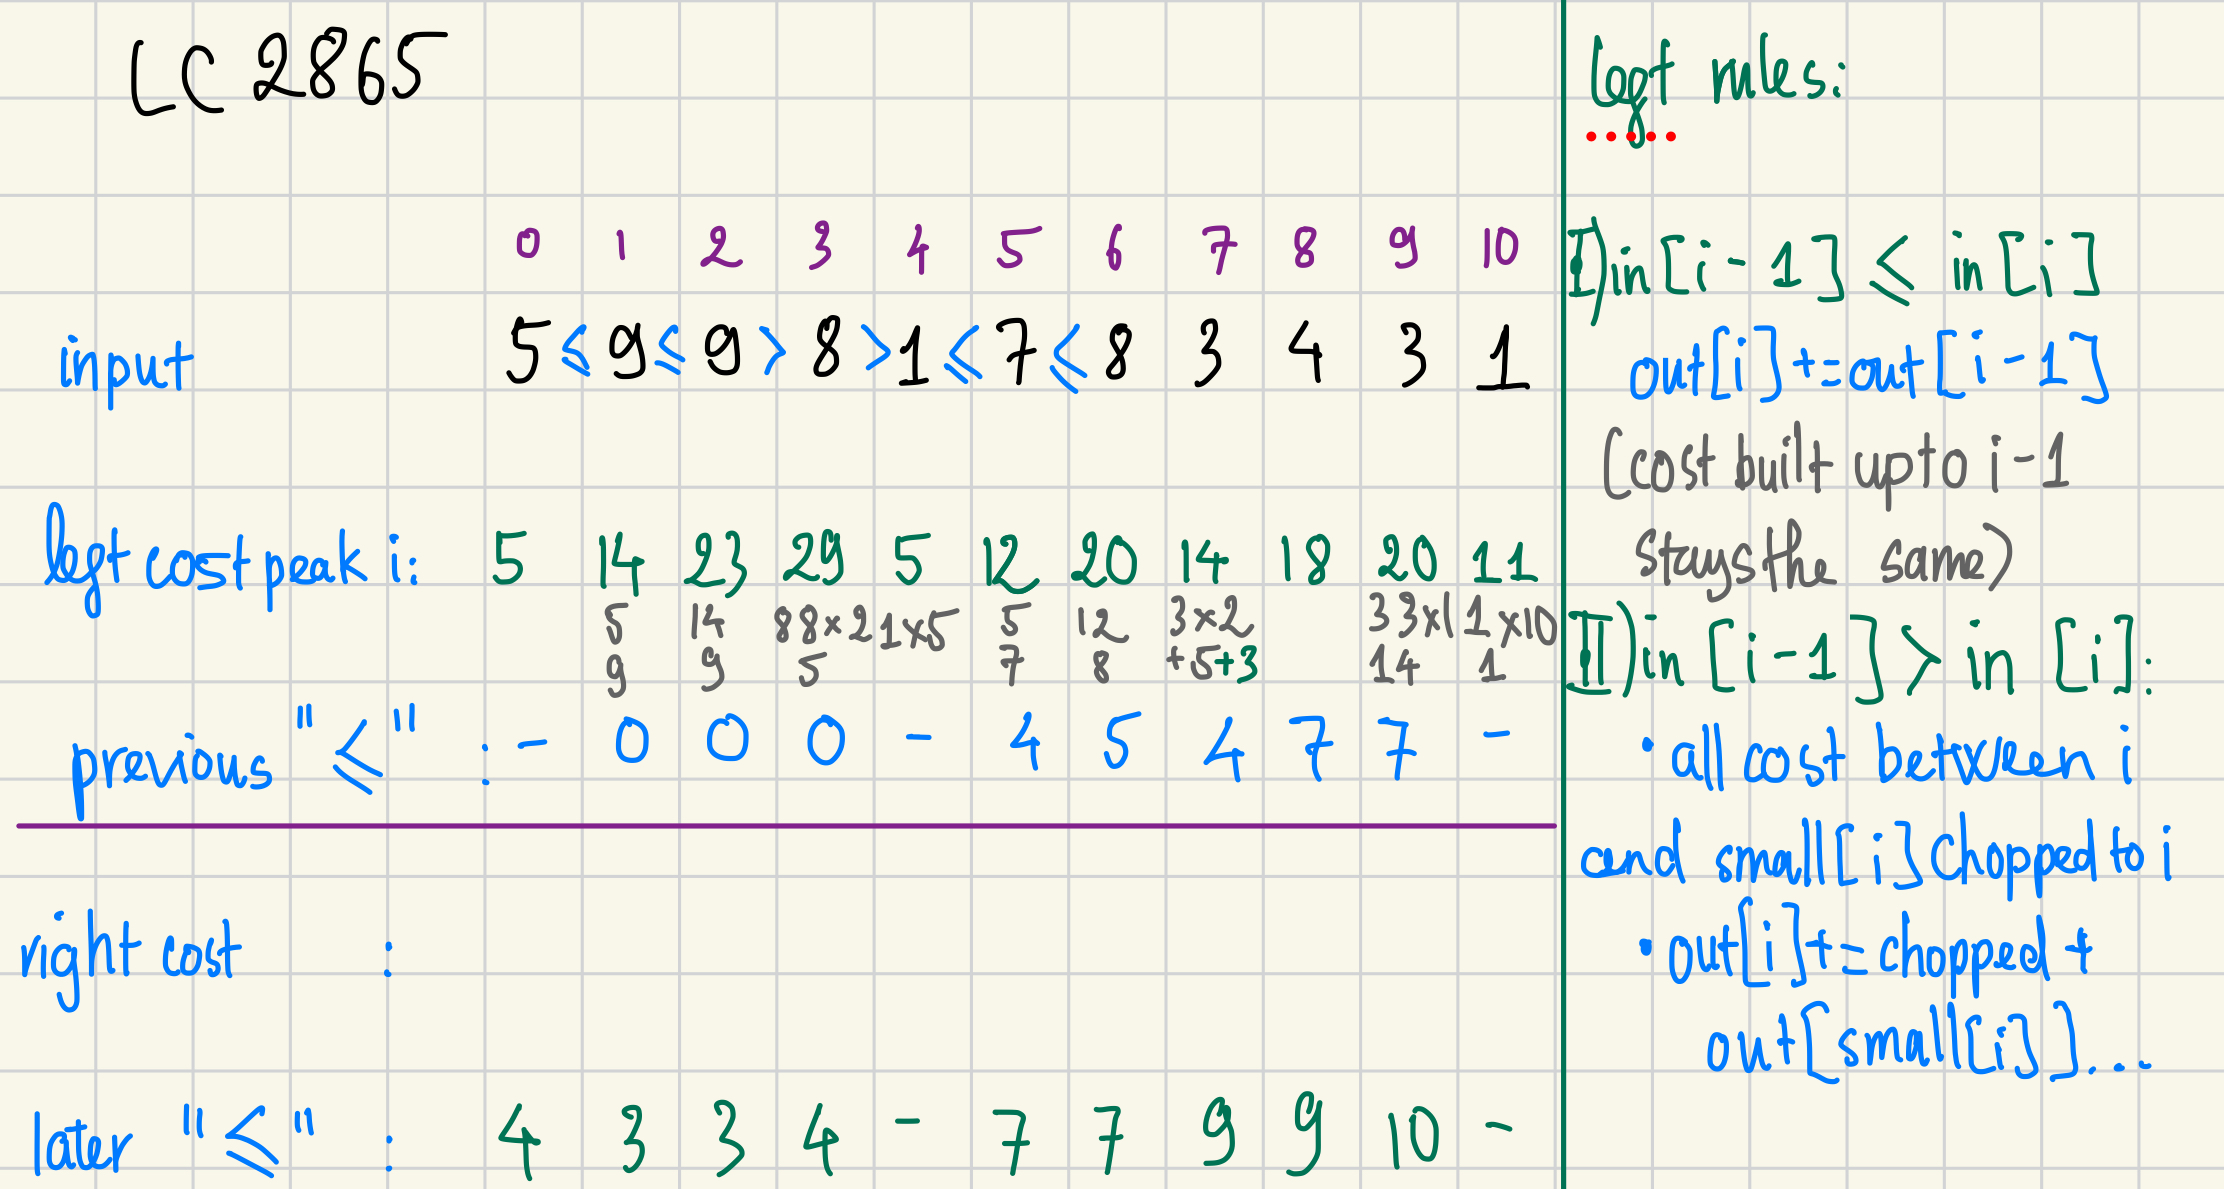 LC 2865
0 1 2 3 4 5 6 7 8 9 10
input 5 ≤ 9 ≤ 9 > 8 > 1 ≤ 7 ≤ 8 3 4 3 1
left cost peak i: 5 14 23 29 5 12 20 14 18 20 11
5 14 88×2 1×5 5 12 3×2 33×1 1×10
9 9 5 7 8 +5+3 14 1
previous "≤" : - 0 0 0 - 4 5 4 7 7 -
right cost :
later "≤" : 4 3 3 4 - 7 7 9 9 10 -
left rules:
I) in[i-1] ≤ in[i]
out[i]+=out[i-1]
(cost built up to i-1
stays the same)
II) in[i-1] > in[i]:
• all cost between i
and small[i] chopped to i
• out[i]+=chopped+
out[small[i]]...